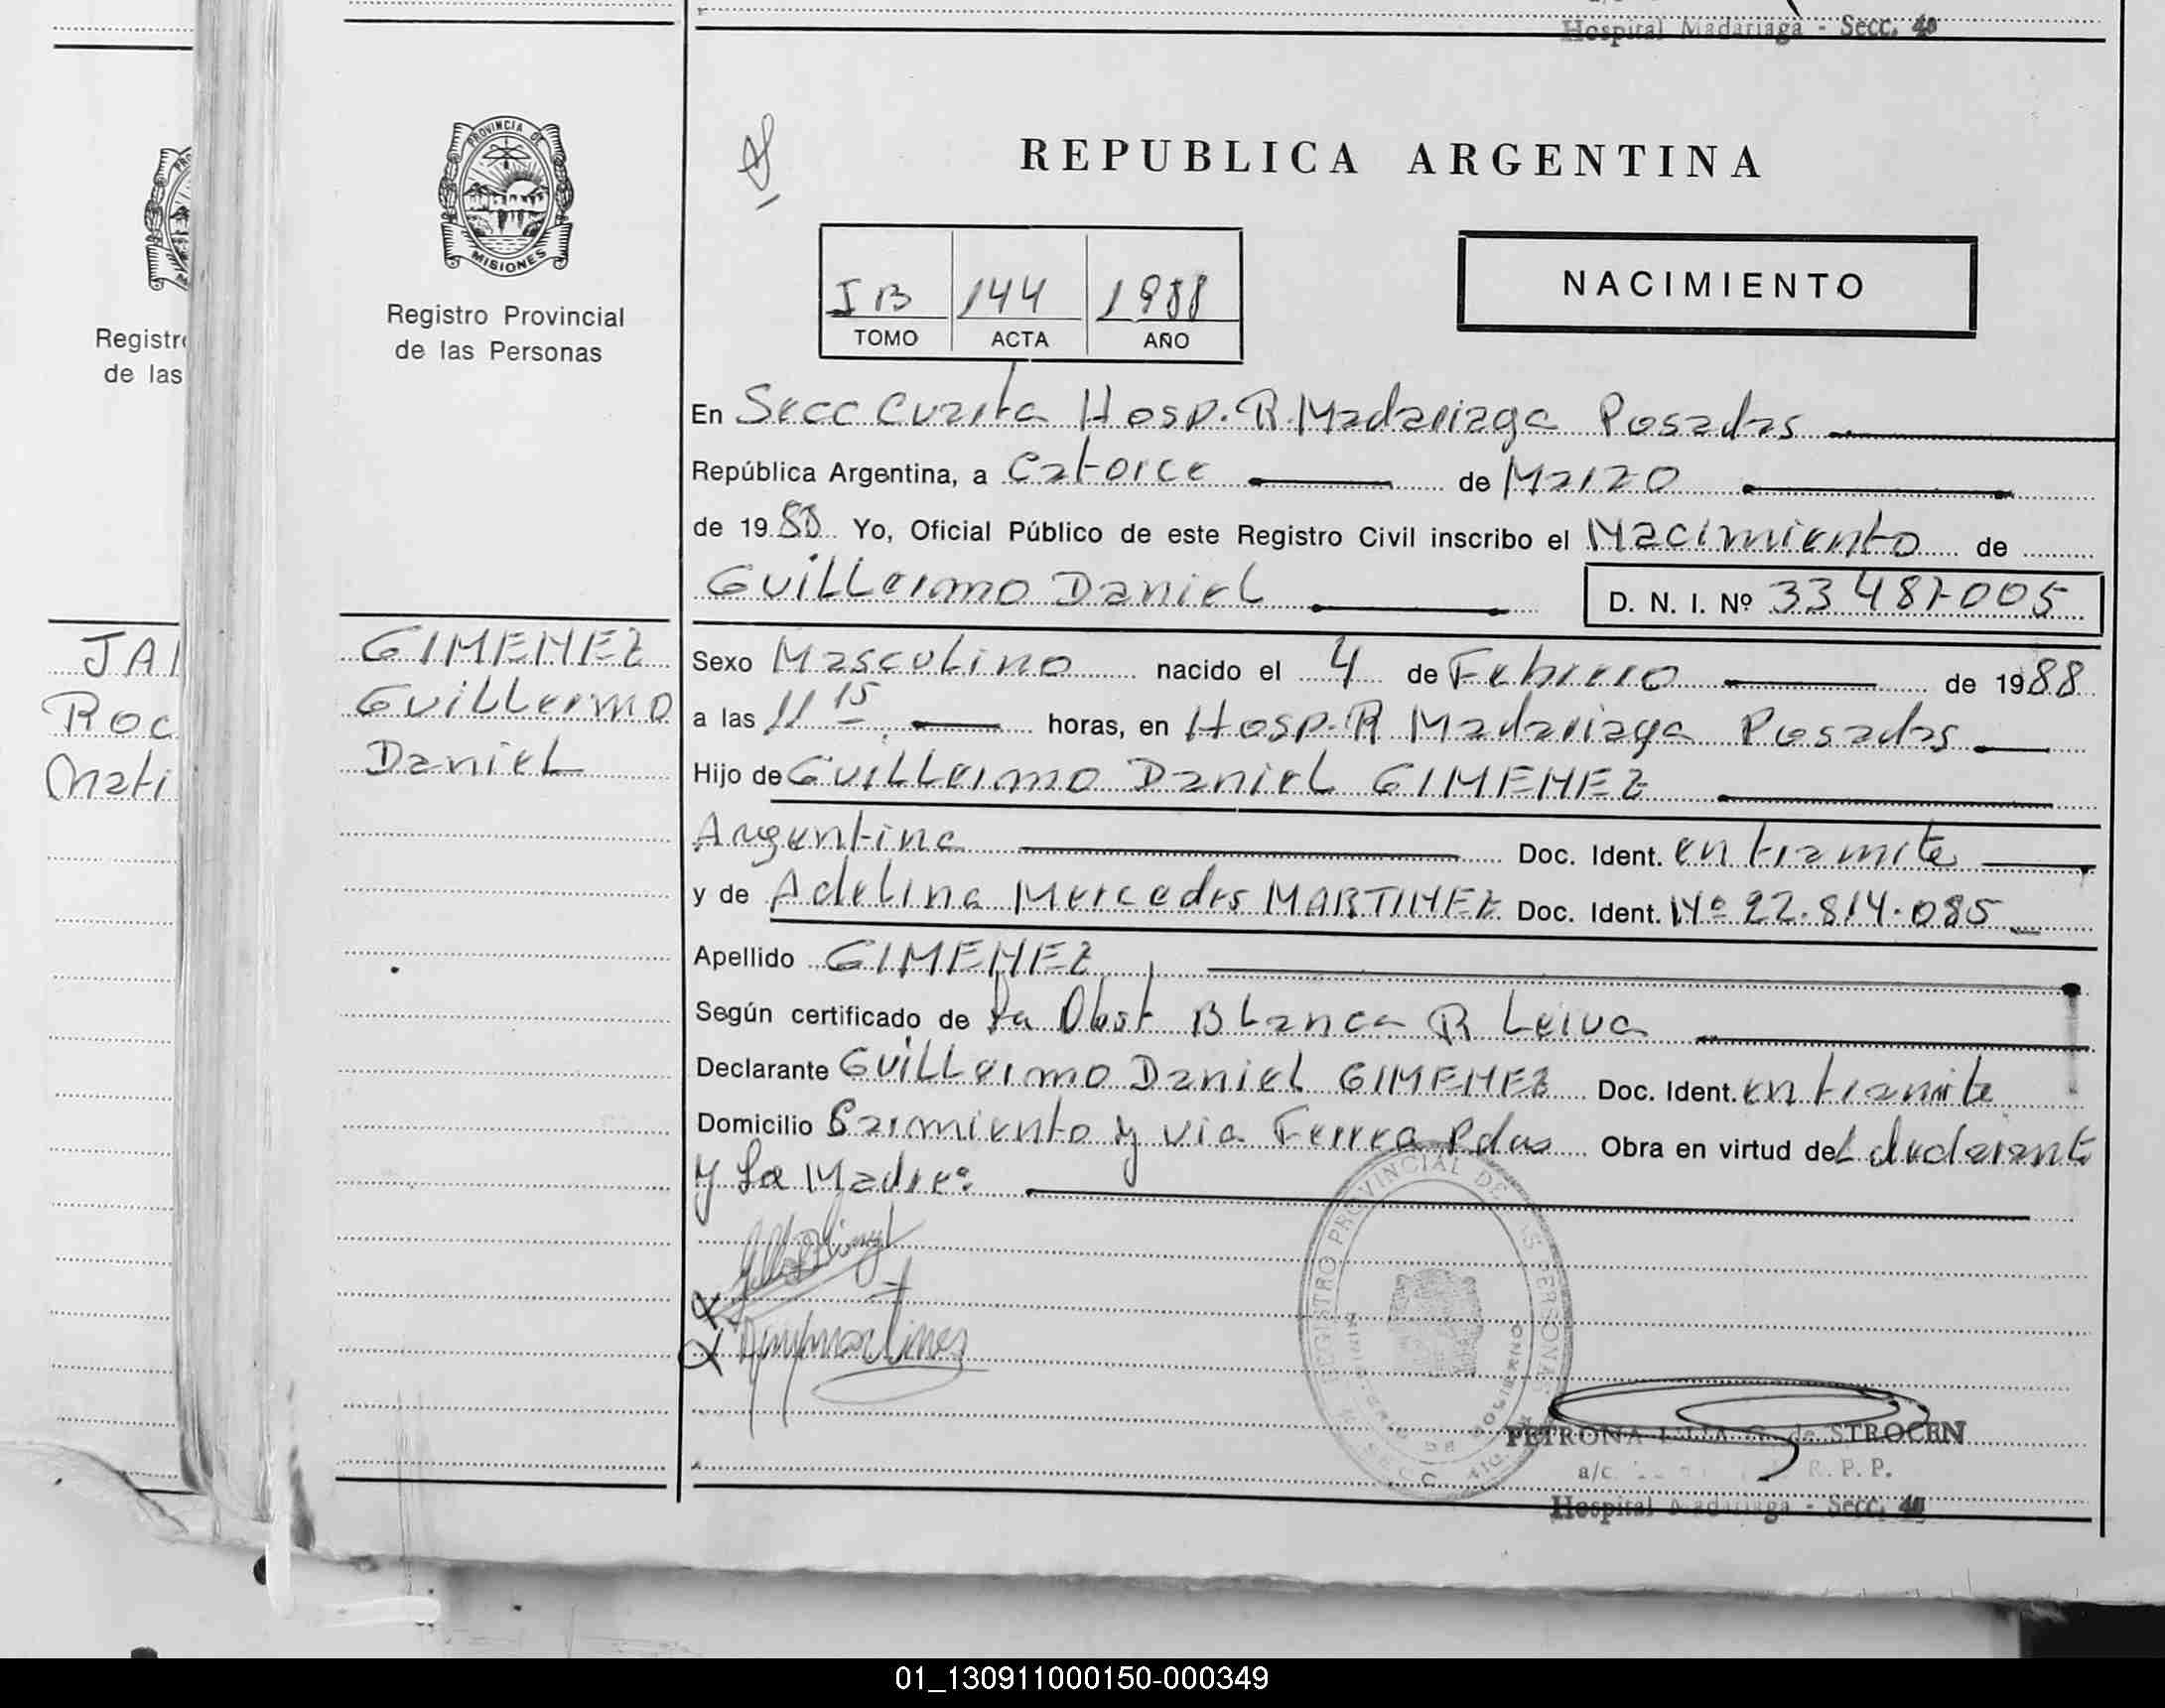 Hospital Madariaga - Secc. 4a
PROVINCIA DE
MISIONES
Registro Provincial
de las Personas
REPUBLICA ARGENTINA
NACIMIENTO
I B 144 1988
TOMO ACTA AÑO
En Secc Cuarta Hosp. R. Madariaga Posadas
República Argentina, a Catorce de Marzo
de 1988 Yo, Oficial Público de este Registro Civil inscribo el Nacimiento de
Guillermo Daniel D. N. I. Nº 33 487-005
GIMENEZ
Guillermo
Daniel
Sexo Masculino nacido el 4 de Febrero de 1988
a las 11 15 horas, en Hosp. R Madariaga Posadas
Hijo de Guillermo Daniel GIMENEZ
Argentina Doc. Ident. en tramite
y de Adelina Mercedes MARTINEZ Doc. Ident. Nº 22.814.085
Apellido GIMENEZ
Según certificado de La Obst Blanca R Leiva
Declarante Guillermo Daniel GIMENEZ Doc. Ident. en tramite
Domicilio Sarmiento y via Ferrea Pdas Obra en virtud del declarante
y La Madre
REGISTRO PROVINCIAL DE LAS PERSONAS
PETRONA de STROCEN
a/c. R. P. P.
Hospital Madariaga - Secc. 4a
Registro
de las
JA
Roc
Mati
01_130911000150-000349